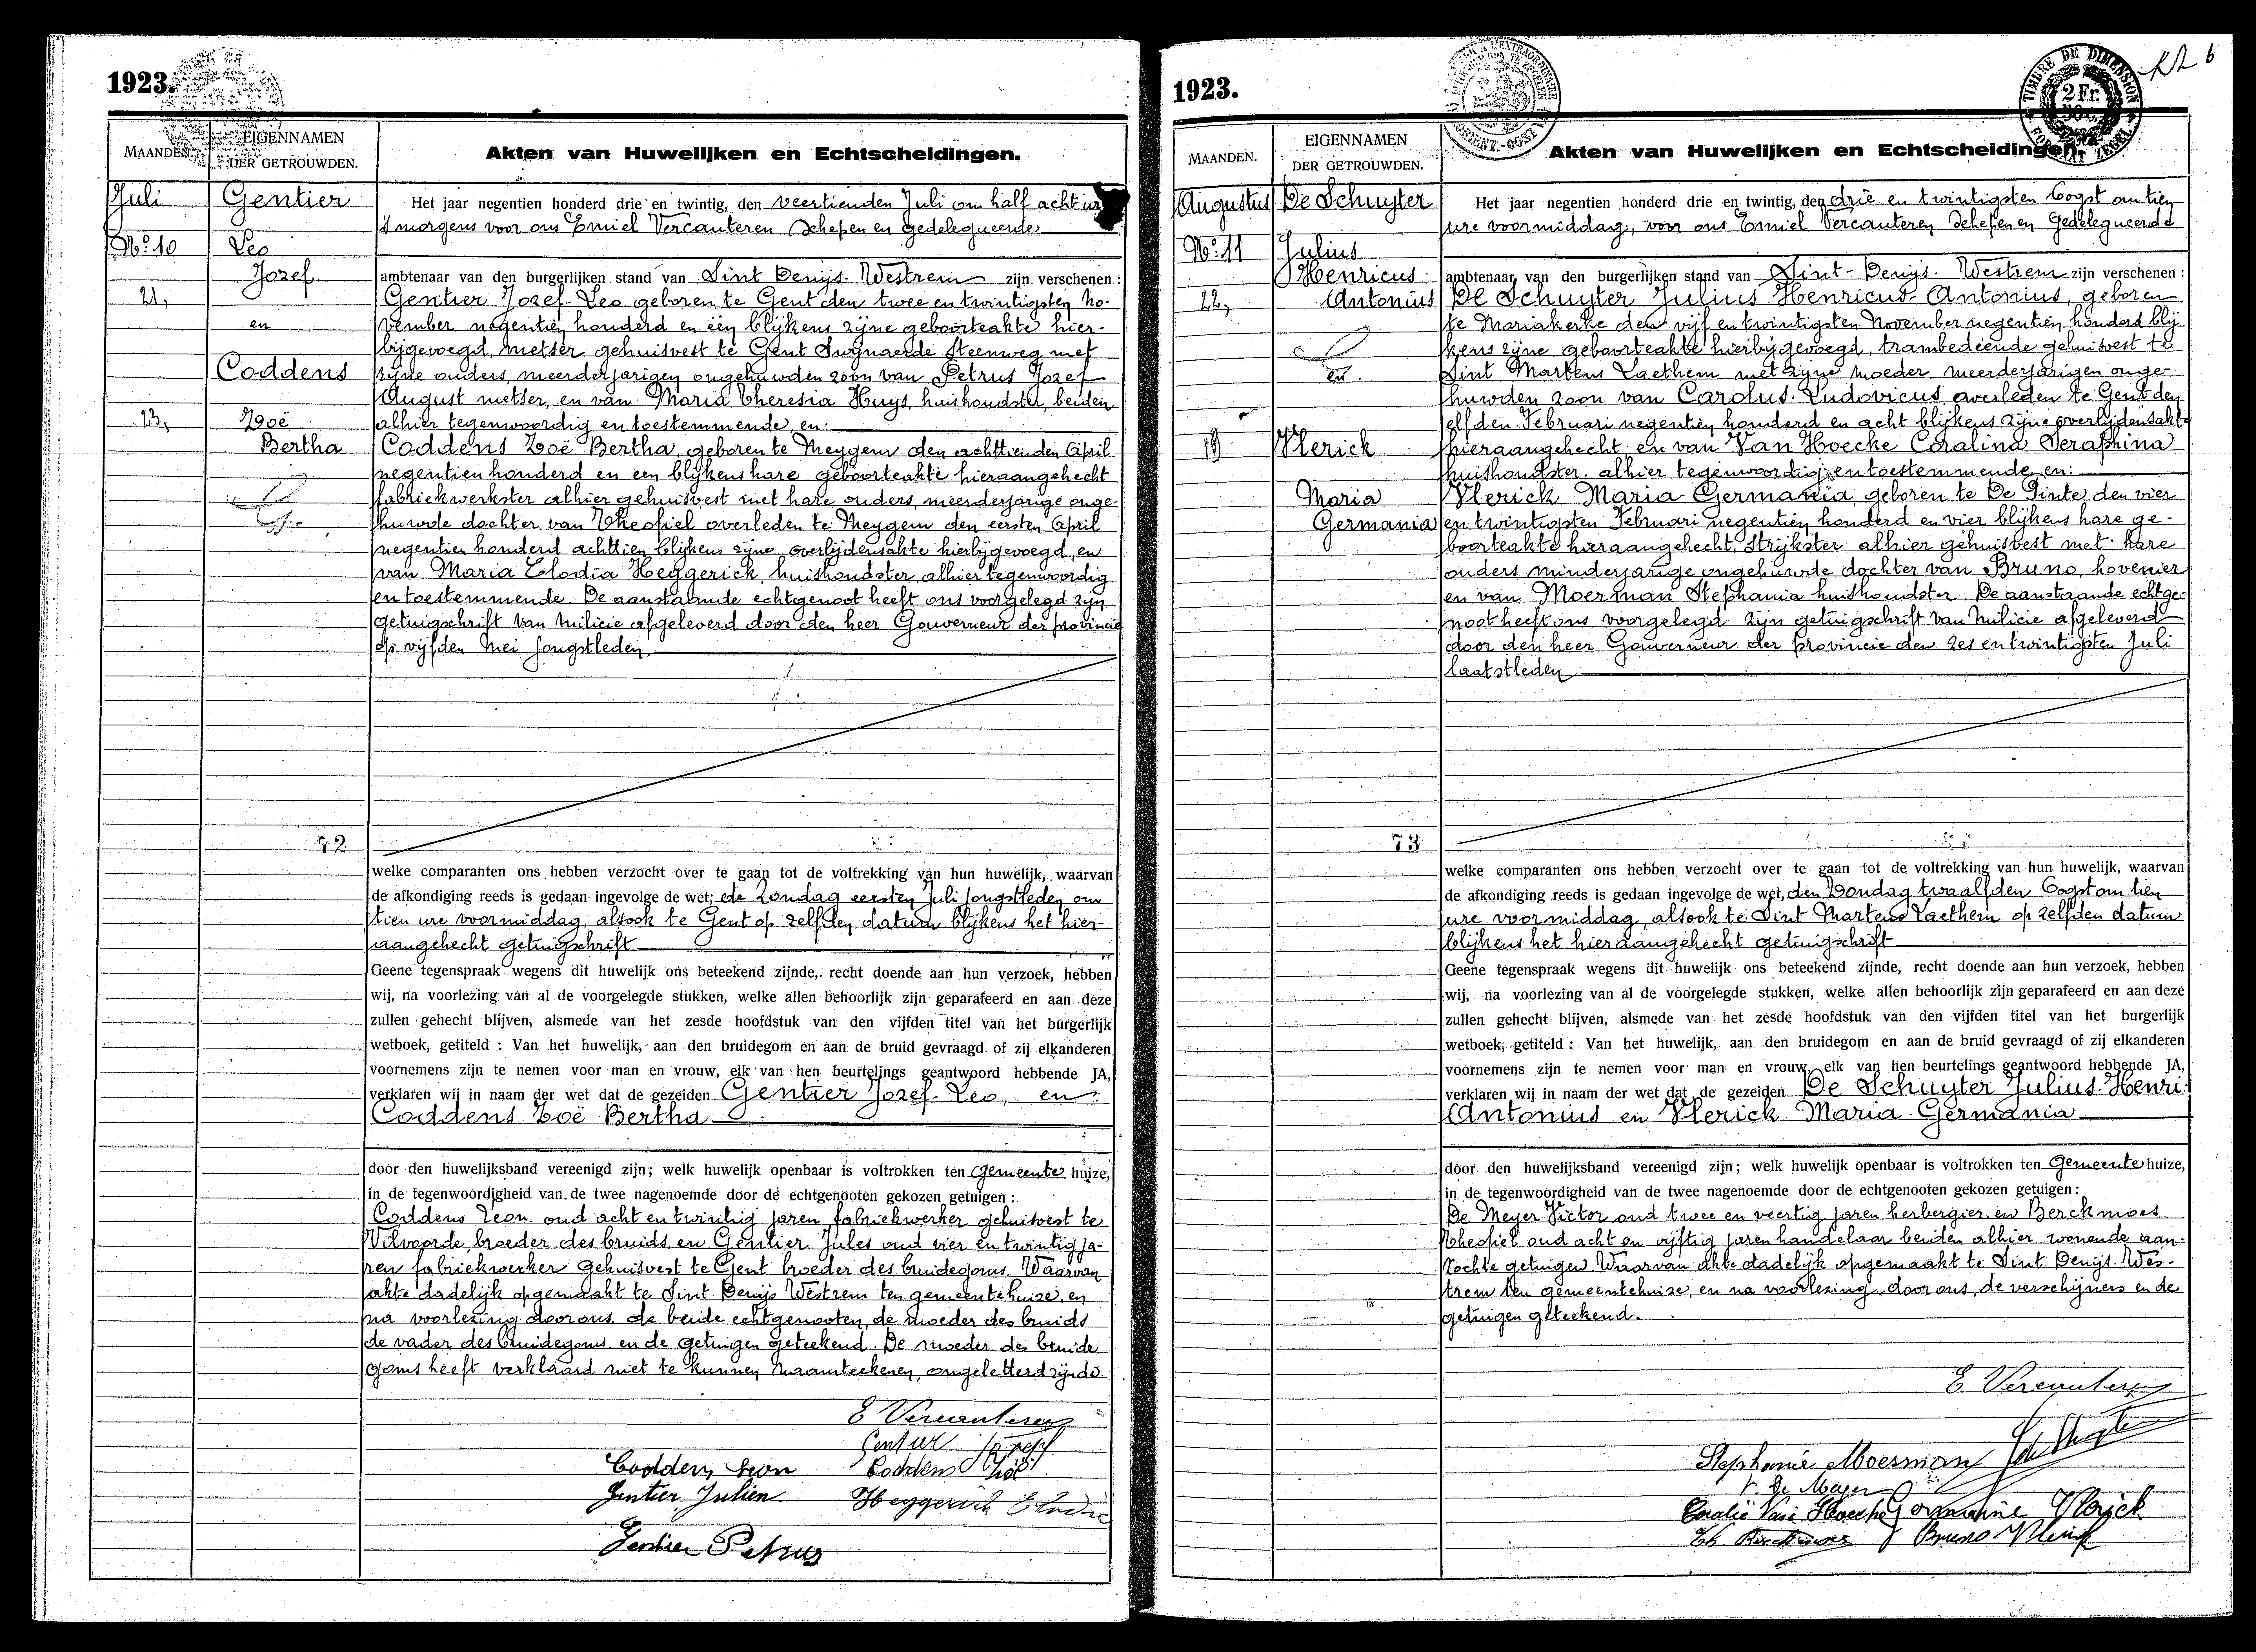 1923.
MAANDEN.
EIGENNAMEN
DER GETROUWDEN.
Akten van Huwelijken en Echtscheidingen.
Juli
No. 10
21,
23,
Gentier
Leo
Jozef
en
Coddens
Zoë
Bertha
72
Het jaar negentien honderd drie en twintig, den veertienden Juli om half acht ure
's morgens voor ons Emiel Vercauteren Schepen en gedelegueerde
ambtenaar van den burgerlijken stand van Sint Denijs-Westrem zijn verschenen :
Gentier Jozef-Leo geboren te Gent den twee en twintigsten No-
vember negentien honderd en één blijkens zijne geboorteakte hier-
bijgevoegd, metser gehuisvest te Gent Swijnaerde Steenweg met
zijne ouders, meerderjarigen ongehuwden zoon van Petrus Jozef
August metser, en van Maria Theresia Huys, huishoudster, beiden
alhier tegenwoordig en toestemmende, en:
Coddens Zoë Bertha, geboren te Meygem den achttienden April
negentien honderd en een blijkens hare geboorteakte hieraangehecht
fabriekwerkster alhier gehuisvest met hare ouders, meerderjarige onge-
huwde dochter van Theofiel overleden te Meygem den eersten April
negentien honderd achttien blijkens zijne overlijdensakte hierbijgevoegd, en
van Maria Elodia Heggerick, huishoudster, alhier tegenwoordig
en toestemmende. De aanstaande echtgenoot heeft ons voorgelegd zijn
getuigschrift van Milicie afgeleverd door den heer Gouverneur der provincie
op vijfden Mei jongstleden.
welke comparanten ons hebben verzocht over te gaan tot de voltrekking van hun huwelijk, waarvan
de afkondiging reeds is gedaan ingevolge de wet; de Zondag eersten Juli jongstleden om
tien ure voormiddag, alsook te Gent op zelfden datum blijkens het hier-
aangehecht getuigschrift
Geene tegenspraak wegens dit huwelijk ons beteekend zijnde, recht doende aan hun verzoek, hebben
wij, na voorlezing van al de voorgelegde stukken, welke allen behoorlijk zijn geparafeerd en aan deze
zullen gehecht blijven, alsmede van het zesde hoofdstuk van den vijfden titel van het burgerlijk
wetboek, getiteld : Van het huwelijk, aan den bruidegom en aan de bruid gevraagd of zij elkanderen
voornemens zijn te nemen voor man en vrouw, elk van hen beurtelings geantwoord hebbende JA,
verklaren wij in naam der wet dat de gezeiden Gentier Jozef-Leo, en
Coddens Zoë Bertha
door den huwelijksband vereenigd zijn; welk huwelijk openbaar is voltrokken ten Gemeente huize,
in de tegenwoordigheid van de twee nagenoemde door de echtgenooten gekozen getuigen :
Coddens Leon, oud acht en twintig jaren fabriekwerker gehuisvest te
Vilvoorde, broeder des bruids en Gentier Jules oud vier en twintig ja-
ren fabriekwerker gehuisvest te Gent broeder des bruidegoms. Waarvan
akte dadelijk opgemaakt te Sint Denijs Westrem ten gemeentehuize, en
na voorlezing door ons, de beide echtgenooten, de moeder des bruids
de vader des bruidegoms en de getuigen geteekend. De moeder des bruide
goms heeft verklaard niet te kunnen naamteekenen, ongeletterd zijnde
E Vercauteren
Gentier Jozef
Coddens Leon Coddens Zoë
Gentier Julien Heggerick Elodie
Gentier Petrus
1923.
TIMBRE DE DIMENSION
2 Fr.
6
MAANDEN.
EIGENNAMEN
DER GETROUWDEN.
Akten van Huwelijken en Echtscheidingen.
Augustus
No. 11
22,
19
De Schuyter
Julius
Henricus
Antonius
en
Vlerick
Maria
Germania
73
Het jaar negentien honderd drie en twintig, den drie en twintigsten Oogst om tien
ure voormiddag, voor ons Emiel Vercauteren Schepen en Gedelegueerde
ambtenaar van den burgerlijken stand van Sint-Denijs-Westrem zijn verschenen :
De Schuyter Julius-Henricus-Antonius, geboren
te Mariakerke den vijf en twintigsten November negentien honderd blij-
kens zijne geboorteakte hierbijgevoegd, trambediende gehuisvest te
Sint Martens Laethem met zijne moeder, meerderjarigen onge-
huwden zoon van Carolus-Ludovicus, overleden te Gent den
elfden Februari negentien honderd en acht blijkens zijne overlijdensakte
hieraangehecht en van Van Hoecke Coralina Seraphina
huishoudster, alhier tegenwoordig en toestemmende, en:
Vlerick Maria-Germania, geboren te De Pinte den vier
en twintigsten Februari negentien honderd en vier blijkens hare ge-
boorteakte hieraangehecht, Strijkster alhier gehuisvest met hare
ouders minderjarige ongehuwde dochter van Bruno, hovenier
en van Moerman Stephania huishoudster. De aanstaande echtge-
noot heeft ons voorgelegd zijn getuigschrift van Milicie afgeleverd
door den heer Gouverneur der provincie den zes en twintigsten Juli
laatstleden
welke comparanten ons hebben verzocht over te gaan tot de voltrekking van hun huwelijk, waarvan
de afkondiging reeds is gedaan ingevolge de wet, den Zondag twaalfden Oogst om tien
ure voormiddag, alsook te Sint Martens Laethem op zelfden datum
blijkens het hieraangehecht getuigschrift
Geene tegenspraak wegens dit huwelijk ons beteekend zijnde, recht doende aan hun verzoek, hebben
wij, na voorlezing van al de voorgelegde stukken, welke allen behoorlijk zijn geparafeerd en aan deze
zullen gehecht blijven, alsmede van het zesde hoofdstuk van den vijfden titel van het burgerlijk
wetboek, getiteld : Van het huwelijk, aan den bruidegom en aan de bruid gevraagd of zij elkanderen
voornemens zijn te nemen voor man en vrouw, elk van hen beurtelings geantwoord hebbende JA,
verklaren wij in naam der wet dat de gezeiden De Schuyter Julius-Henri-
Antonius en Vlerick Maria-Germania
door den huwelijksband vereenigd zijn; welk huwelijk openbaar is voltrokken ten Gemeente huize,
in de tegenwoordigheid van de twee nagenoemde door de echtgenooten gekozen getuigen :
De Meyer Victor oud twee en veertig jaren herbergier en Berckmoes
Theofiel oud acht en vijftig jaren handelaar beiden alhier wonende aan-
zochte getuigen. Waarvan akte dadelijk opgemaakt te Sint Denijs-Wes-
trem ten gemeentehuize, en na voorlezing door ons, de verschijners en de
getuigen geteekend.
E Vercauteren
Stephanie Moerman
V. De Meyer
Coralie Van Hoecke Germaine Vlerick
Th Berckmoes Bruno Vlerick